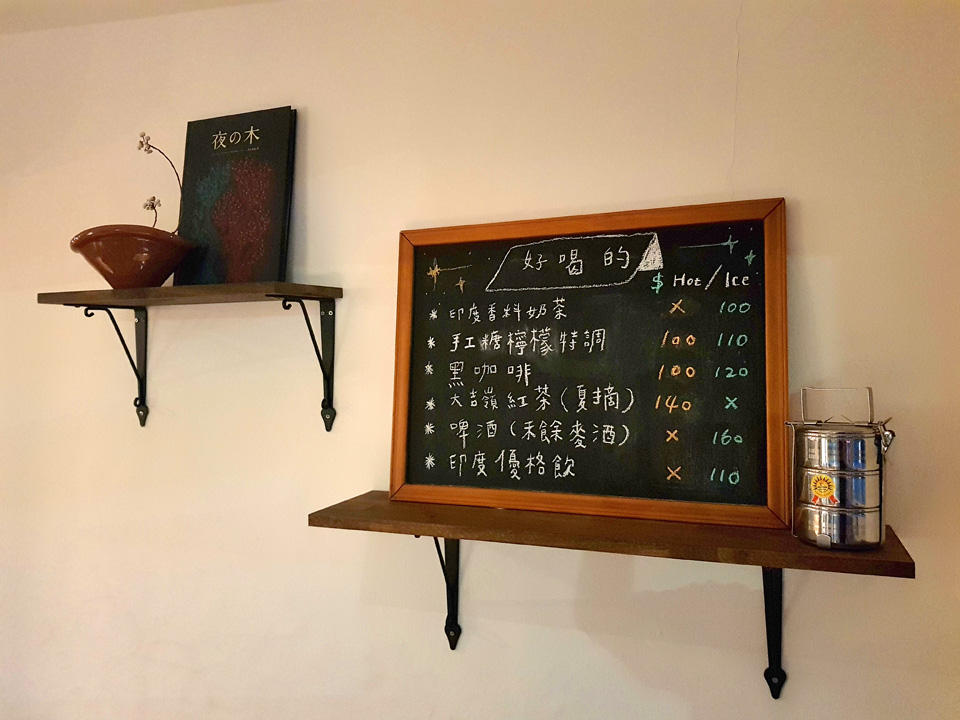 夜の木
好喝的
$ Hot / Ice
* 印度香料奶茶 X 100
* 手工糖檸檬特調 100 110
* 黑咖啡 100 120
* 大吉嶺紅茶(夏摘) 140 X
* 啤酒(禾餘麥酒) X 160
* 印度優格飲 X 110